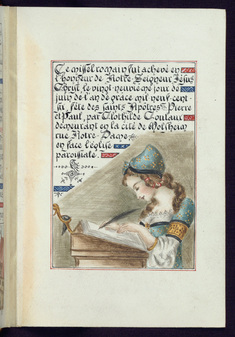 Ce missel romain fut achevé en
l'honneur de Notre Seigneur Jésus
Christ le vingt neuvième jour de
juin de l'an de grâce mil neuf cent
six fête des saints Apôtres Pierre
et Paul, par Clothilde Coulaux
demeurant en la cité de Molsheim
rue Notre Dame
en face l'église
paroissiale.